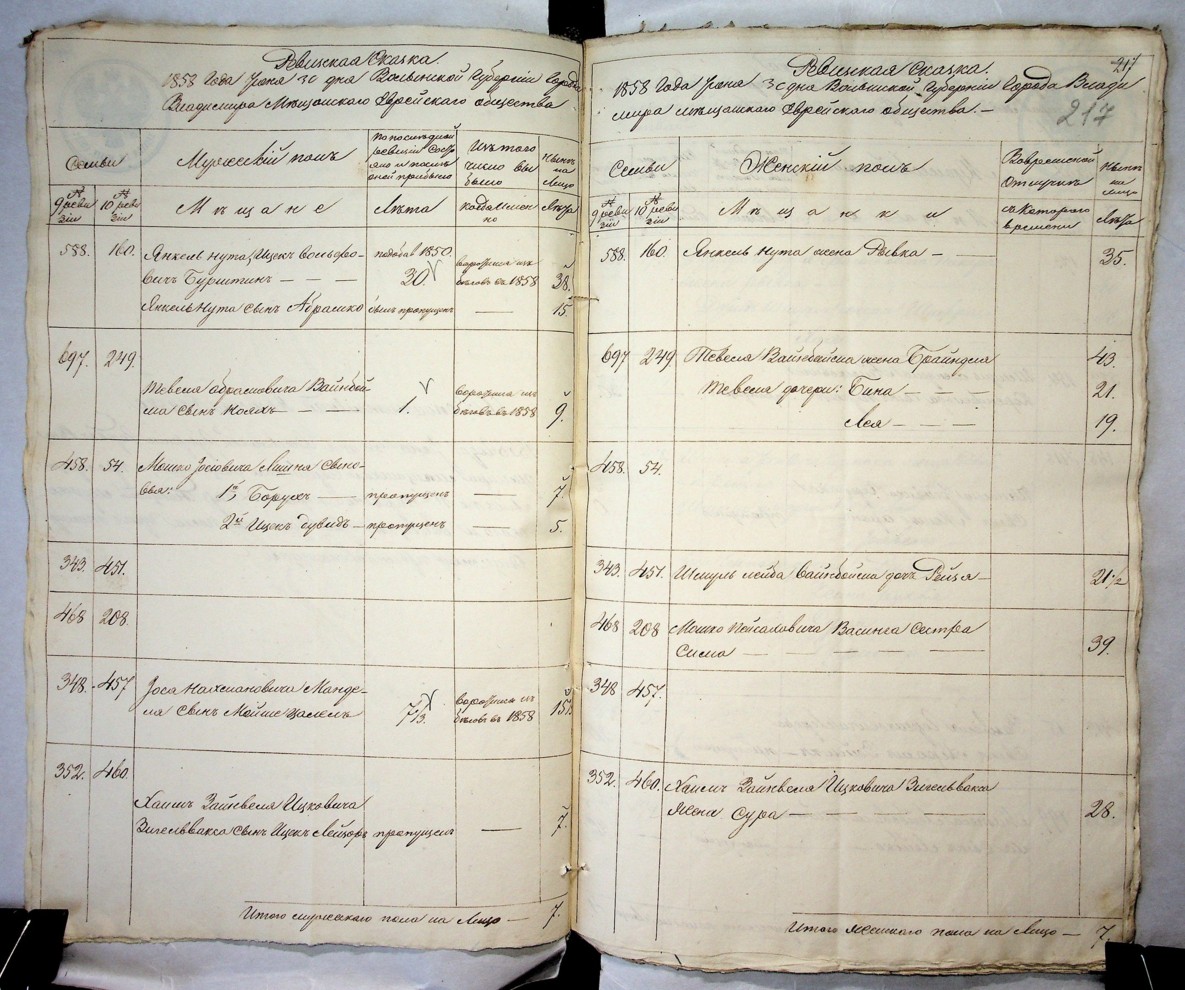 Ревизская Сказка.
1858 Года Июня 30 дня Волынской Губернии Города
Владимира Мѣщанскаго Еврейскаго общества
Семьи
Мужескій полъ
По послѣдной
ревизіи состо
яло и послѣ
оной прибыло
Изъ того
число вы
было
Нынѣ
на
Лицо
№
9 реви
зіи
№
10 реви
зіи
Мѣщане
Лѣта
когда имен
но
Лѣта
588. 160. Янкель Нута Ицекъ Вольфо-
вичъ Бурштинъ — — — 30. 38.
Янкель Нута сынъ Абрамко былъ пропущенъ — 15.
697. 249.
Тевеля Абрамовича Вайнбой-
ма сынъ Ноахъ — — 1. 9.
458. 54. Мошко Іосіовича сыно-
вья: 1й Борухъ — пропущенъ — 7.
2й Ицекъ Дувидъ — пропущенъ — 5.
343. 451.
468 208.
348. 457 Іоса Нахмановича Манде-
ля сынъ Мойше
1858
352. 460.
Хаимъ Зайвеля Ицковича
Зигельвакса сынъ Ицекъ Лейзоръ пропущенъ — 7.
Итого мужескаго пола на Лицо — 7.
217
Ревизская Сказка.
1858 Года Июня 30 дня Волынской Губерніи Города Влади
мира мѣщанскаго Еврейскаго общества. —
217
Семьи
Женскій полъ
Во временной
Отлучкѣ
Нынѣ
на
лицо
№
9 реви
зіи
№
10 реви
зіи
Мѣщанки
съ котораго
времени
Лѣта
588. 160. Янкель Нута жена Рывка — — 35.
697 249 Тевеля Вайнбойма жена Брайндля 43.
Тевеля дочери: Бина — — — 21.
Лея — — — 19.
458. 54.
343. 451 Шмуль Лейба Вайнбойма дочь Рейзя — 21½
468 208 Мошко Пейсаховича Васинга Сестра
Сима — — — — — 39.
348 457.
352. 460. Хаимъ Зайвеля Ицковича Зигельвакса
жена Сура — — — — 28.
Итого женскаго пола на Лицо — 7.